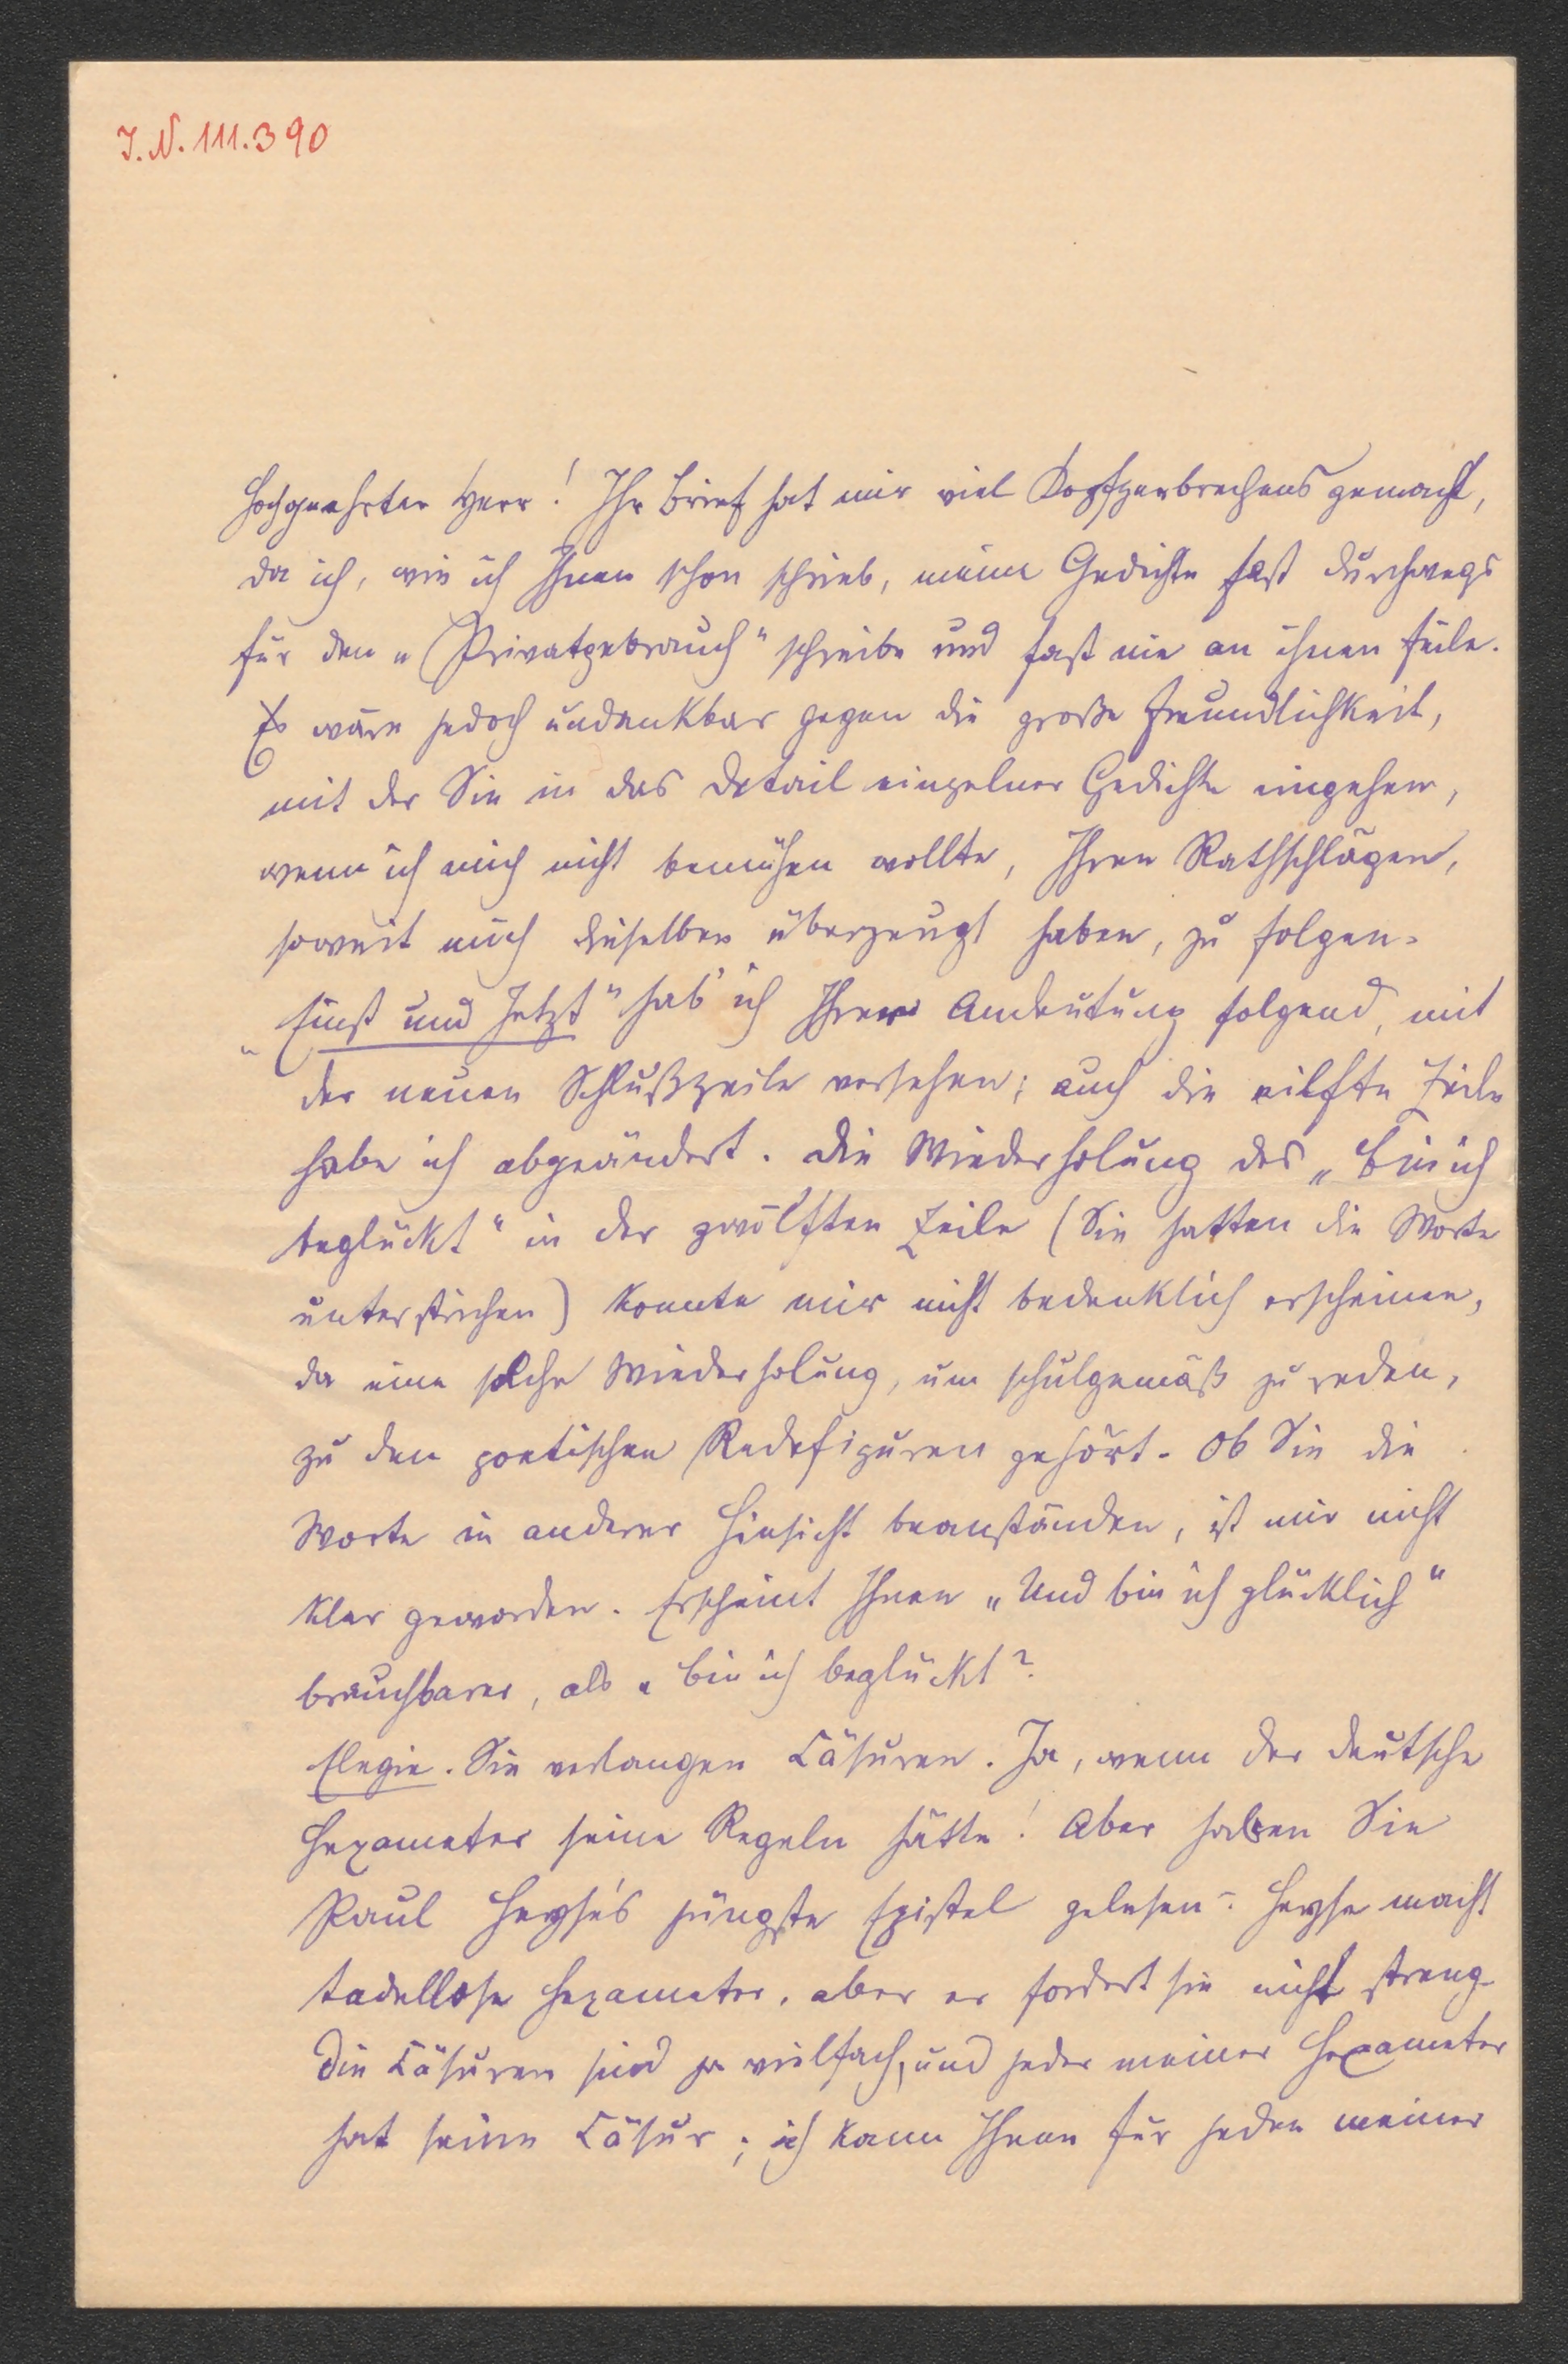 I.N. 111.390
Hochgeehrter Herr! Ihr Brief hat mir viel Kopfzerbrechens gemacht,
da ich, wie ich Ihnen schon schrieb, meine Gedichte fast durchwegs
für den „Privatgebrauch" schreibe und fast nie an ihnen feile.
Es wäre jedoch undankbar gegen die große Freundlichkeit,
mit der Sie in das Detail einzelner Gedichte eingehen,
wenn ich mich nicht bemühen wollte, Ihren Rathschlägen,
soweit mich dieselben überzeugt haben, zu folgen.
„Einst und Jetzt" hab' ich Ihrer Andeutung folgend, mit
der neuen Schlußzeile versehen; auch die eilfte Zeile
habe ich abgeändert. Die Wiederholung des „bin ich
beglückt" in der zwölften Zeile (Sie hatten die Worte
unterstrichen) konnte mir nicht bedenklich erscheinen,
da eine solche Wiederholung, um schulgemäß zu reden,
zu den poetischen Redefiguren gehört. Ob Sie die
Worte in anderer Hinsicht beanständen, ist mir nicht
klar geworden. Erscheint Ihnen „Und bin ich glücklich"
brauchbarer, als „bin ich beglückt?
Elegie. Sie verlangen Cäsuren. Ja, wenn der deutsche
Hexameter seine Regeln hätte! Aber haben Sie
Paul Heyse's jüngste Epistel gelesen? Heyse macht
tadellose Hexameter, aber er fordert sie nicht streng.
Die Cäsuren sind ja vielfach, und jeder meiner Hexameter
hat seine Cäsur; ich kann Ihnen für jeden meiner